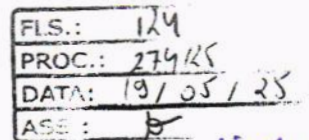 FLS.: 124
PROC.: 274/25
DATA: 19/05/25
ASS.: